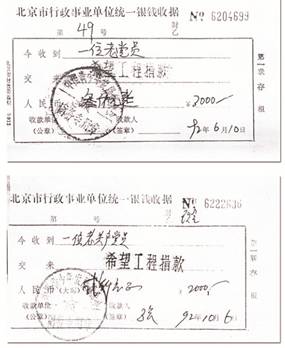 北京市行政事业单位统一银钱收据 № 6204699
第 49 号
今收到 一位老党员
交来 希望工程捐款
人民币 ¥ 3000—
收款单位 收款人
(公章) (签章) 92年6月10日
第一联存根
北京市行政事业单位统一银钱收据 № 6222636
第 号
今收到 一位老共产党员
交来 希望工程捐款
人民币(大写) ¥ 2000—
收款单位 收款人
(公章) (签章) 92年10月6日